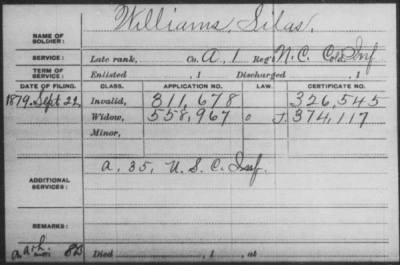 NAME OF SOLDIER: Williams, Silas.
SERVICE: Late rank, Co. A, 1 Reg't N.C. Cold Inf
TERM OF SERVICE: Enlisted , 1 Discharged , 1
DATE OF FILING. CLASS. APPLICATION NO. LAW. CERTIFICATE NO.
1879. Sept 22, Invalid, 311,678 326,545
Widow, 558,967 374,117
Minor,
ADDITIONAL SERVICES: A. 35, U.S.C. Inf.
REMARKS:
Died , 1 , at